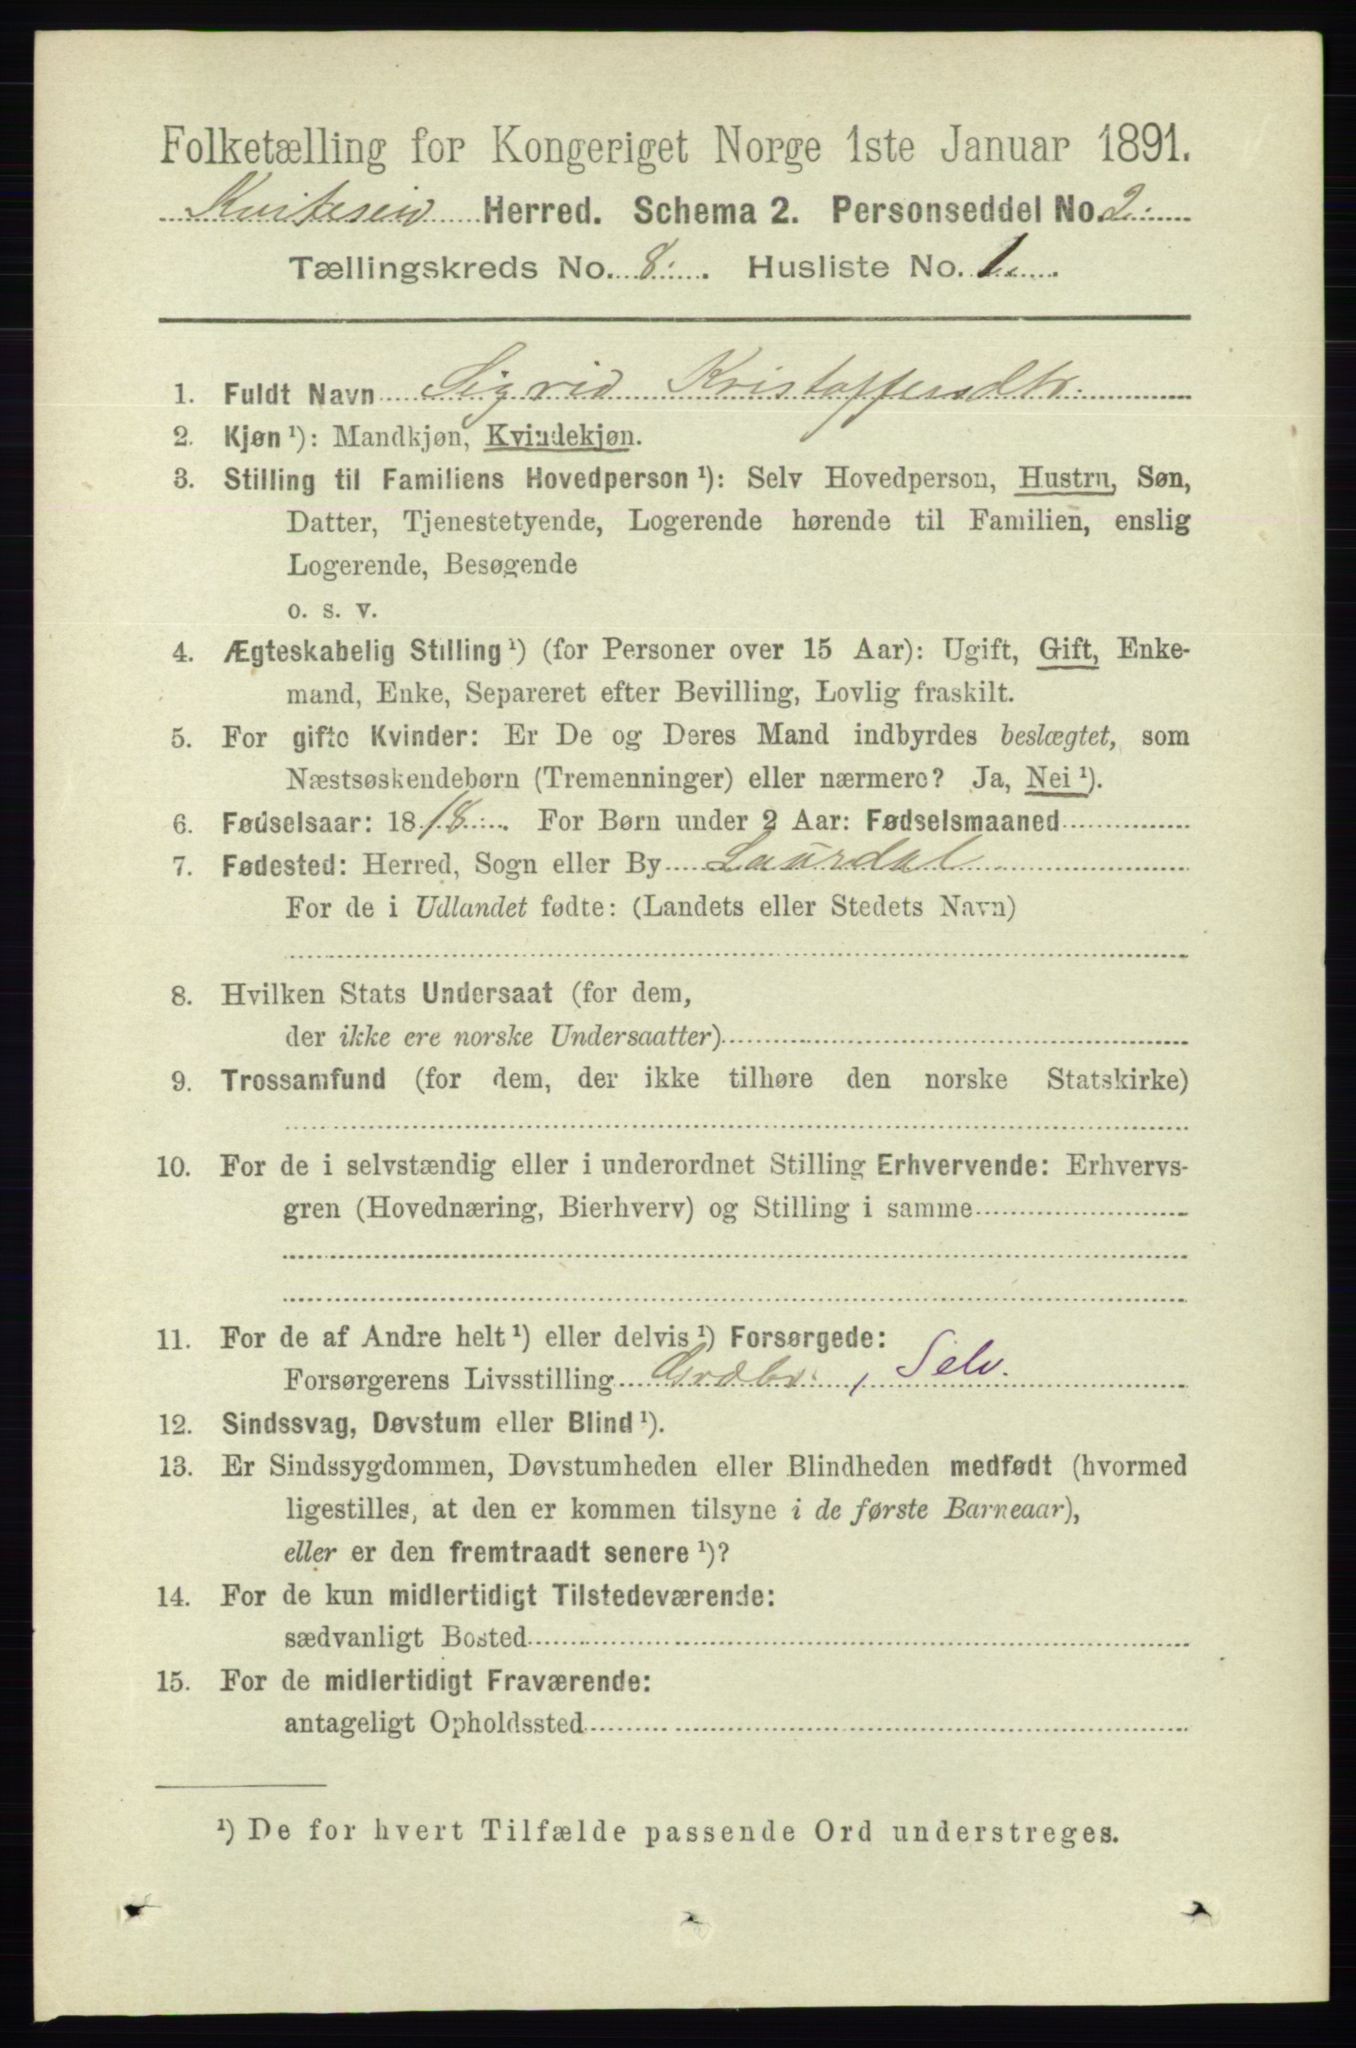 Folketælling for Kongeriget Norge 1ste Januar 1891.
Kviteseid Herred. Schema 2. Personseddel No. 2
Tællingskreds No. 8. Husliste No. 1.
1. Fuldt Navn Sigrid Kristoffersdtr.
2. Kjøn ¹): Mandkjøn, Kvindekjøn.
3. Stilling til Familiens Hovedperson ¹): Selv Hovedperson, Hustru, Søn,
Datter, Tjenestetyende, Logerende hørende til Familien, enslig
Logerende, Besøgende
o. s. v.
4. Ægteskabelig Stilling ¹) (for Personer over 15 Aar): Ugift, Gift, Enke-
mand, Enke, Separeret efter Bevilling, Lovlig fraskilt.
5. For gifte Kvinder: Er De og Deres Mand indbyrdes beslægtet, som
Næstsøskendebørn (Tremenninger) eller nærmere? Ja, Nei ¹).
6. Fødselsaar: 1818. For Børn under 2 Aar: Fødselsmaaned
7. Fødested: Herred, Sogn eller By Laurdal
For de i Udlandet fødte: (Landets eller Stedets Navn)
8. Hvilken Stats Undersaat (for dem,
der ikke ere norske Undersaatter)
9. Trossamfund (for dem, der ikke tilhøre den norske Statskirke)
10. For de i selvstændig eller i underordnet Stilling Erhvervende: Erhvervs-
gren (Hovednæring, Bierhverv) og Stilling i samme
11. For de af Andre helt ¹) eller delvis ¹) Forsørgede:
Forsørgerens Livsstilling Grdbr. , Selv.
12. Sindssvag, Døvstum eller Blind ¹).
13. Er Sindssygdommen, Døvstumheden eller Blindheden medfødt (hvormed
ligestilles, at den er kommen tilsyne i de første Barneaar),
eller er den fremtraadt senere ¹)?
14. For de kun midlertidigt Tilstedeværende:
sædvanligt Bosted
15. For de midlertidigt Fraværende:
antageligt Opholdssted
¹) De for hvert Tilfælde passende Ord understreges.